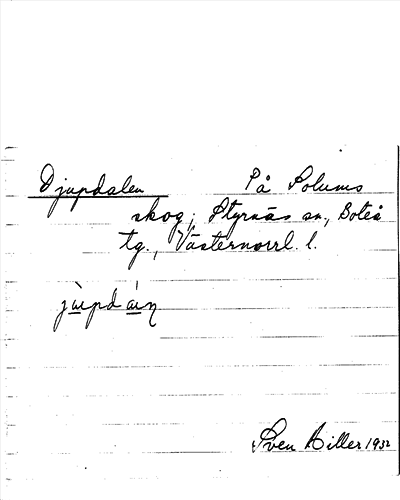 Djupdalen På Solums
skog, Styrnäs sn., Boteå
tg., Västernorrl. l.
Sven Hiller 1932